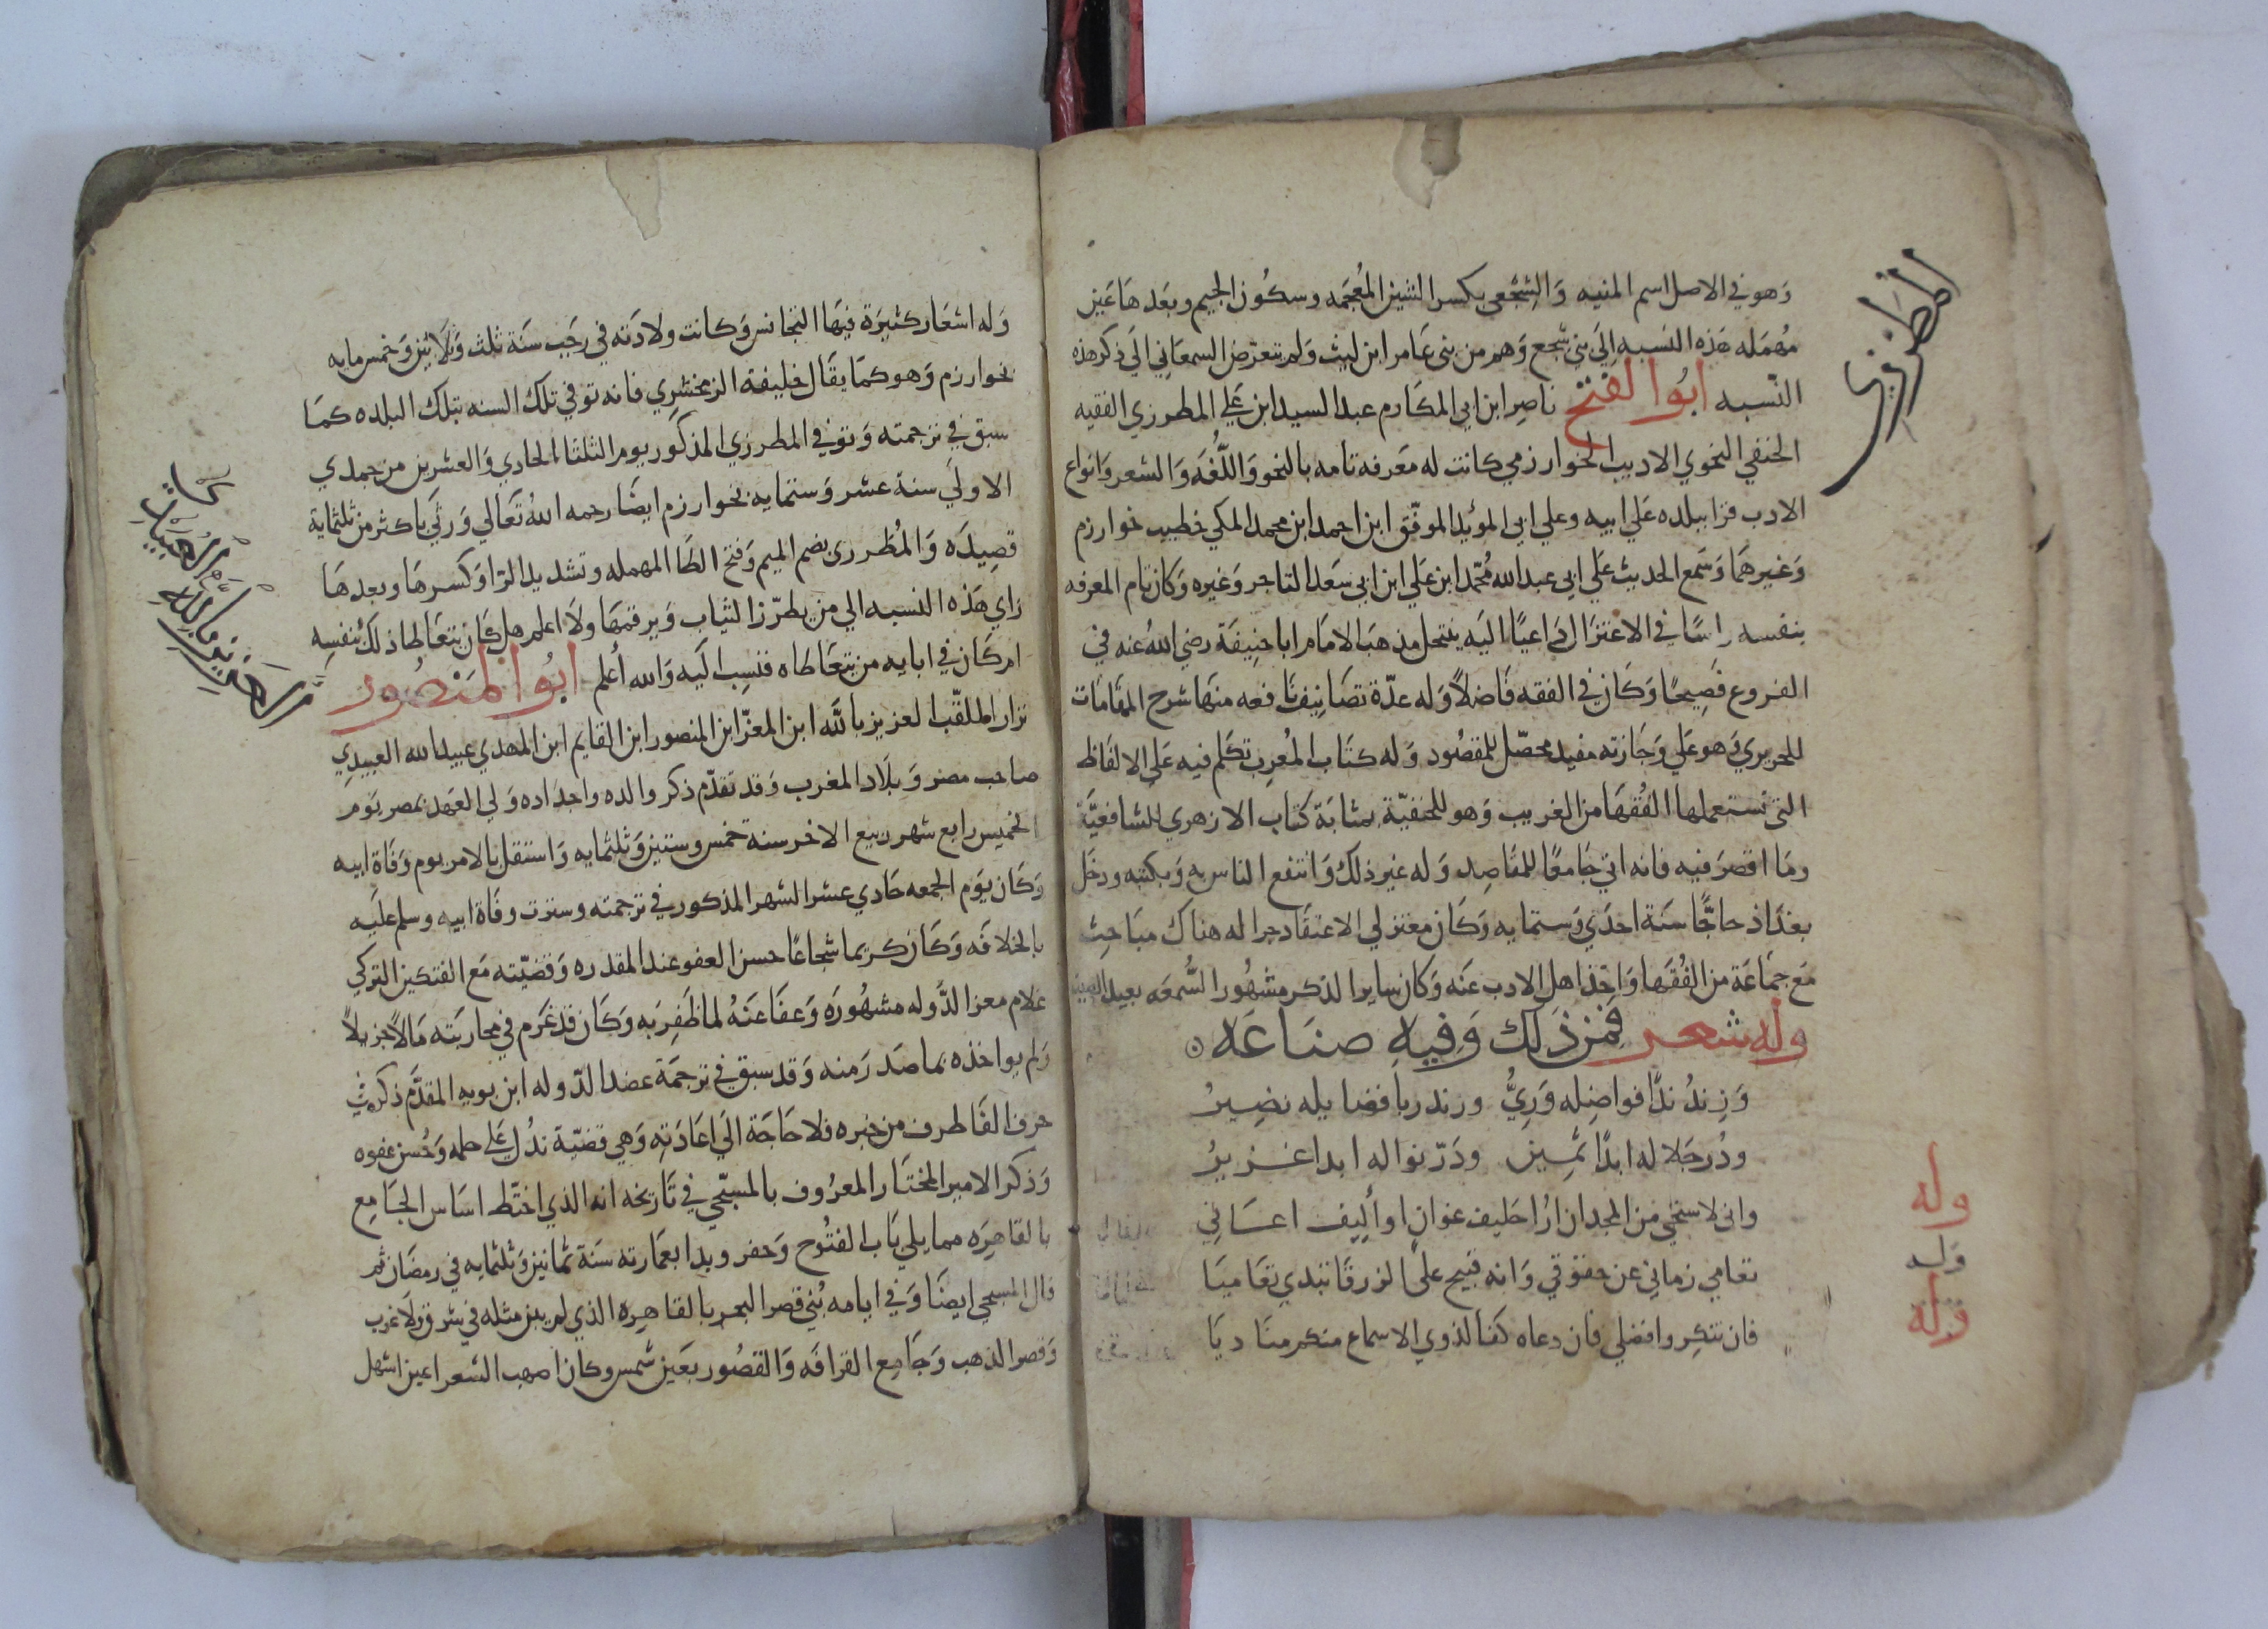 المطرزي
وهو في الاصل اسم المنيه وَالشِجْعي بكسر الشين المُعجمه وسكُون الجيم وبَعدهَا عَين
مُهمَله هَذه النسبه اِلَى بني شجع وَهم من بنى عَامر ابن ليث وَلم تتعرّض السمعَاني الَي ذكر هذه
النّسبه ابُوا الفتح ناصِر ابن ابي المكَارم عبد السيد ابن عَلي المطرزي الفقيه
الحنفي النحوي الاديب الخوارزمي كانت له مَعَرفه تامه بالنحو وَاللُّغَه وَالشعر وَانواع
الادب قرا ببلده عَلي ابيه وعلي ابي الموئد الموفّق ابن احمد ابن محمد المكي خطيب خوارزم
وَغيرهمَا وَسَمع الحديث عَلي ابي عبد الله مُحمّد ابن عَلي ابن ابي سَعد التاجر وَغيره وَكان تام المعرفه
بنفسه راسًا في الاعتزَال دَاعيًا اليَه ينتحل مذهبَ الامَام ابا حنِيفَة رضي اللهُ عنه في
الفروع فَصِيحًا وَكَان في الفقه فَاضلاً وَله عدّة تصَانِيف نَافعه منهَا شرح المقَامَات
للحريري وَهو عَلي وَجَازته مفيد محصّل للمقصُود وَله كتَاب المُعرِب تكلم فيه عَلي الالفَاظ
التي تستعملها الفُقهَا من الغريب وَهو للحنفيّة بمثابَة كتاب الازهري للشافعيَّة
ومَا اقصَرَ فيه فانه اتي جَامعًا للمقاصِد وَله غير ذلك وَانتفع الناس به وَبكتبه ودخَل
بغدَاذ حاجًّا سَنَة احدَي وَستمايه وَكَان معتزلي الاعتقَاد جرا له هنَاك مبَاحِث
مَع جمَاعَة من الفُقهَا وَاخَذ اهل الادب عَنَه وَكان ساير الذكر مشهُور السُّمعَه بعيد الصيت
وله شعر فمن ذَلك وَفيه صنَاعَه
وَزندُ ندَّا فواضِله وَرِيُّ ورند ربا فضايله نضِيرُ
ودُر جَلا له ابدًا ثمِين ودَرّ نواله ابدا غزيرُ
وانى لاستحي من المجد ان ارُا حَليف غوانٍ او أليف اغَانِي
تعامي زماني عن حقوقي وَانه قبيح على الزرقَا تبدي تعَاميَا
فان تنكروا فضلي فان دعاه كفا لذوي الاسماع منكم منَاديَا
وله
وله
وله
وَله اشعَار كثيرَة فيهَا التجانس وَكانت ولادَته في رجَب سَنَة ثلث وَثلَاثين وَخمس مايه
بخوارزم وَهو كمَا يقَال خليفة الزمخشرِي فانه توفي تلك السنه بتلك البلده كمَا
سبق في ترجمته وَتوفي المطرزي المذكور يوم الثلثا الحادي وَالعشرين من جمدي
الاولَي سنة عشر وَستمايه بخوارزم ايضَا رحمه اللهُ تعَالي وَرثَي باكثر من ثلثماية
قصِيدَه وَالمُطَرزى بضم الميم وَفتح الطَا المهمله وتشديد الرّا وَكسرهَا وبعدهَا
زاي هَذه النسبه الي من يطرّز الثياب وَيرقمهَا ولاَ اعلم هل كَان يتعَاطا ذلك بنفسه
ام كَان في ابايه من يتعَاطاه فنسِب اليَه وَالله أعلم ابُوا المَنصُور
نزار الملقّب العزيز بالله ابن المعزّ ابن المنصور ابن القايم ابن المهدي عبيد الله العبيدي
صاحب مصر وَبلَاد المغرب وَقد تقدّم ذكر والده وَاجدَاده وَلي العَهد بمصر يَوم
الخميس رابع شهر ربيع الاخر سنة خمس وستين وَثلثمايه وَاستقل بالامر يوم وَفَاة ابيه
وَكَان يَوم الجمعه حَادي عشر الشهر المذكور في ترجمته وسترت وفَاة ابيه وسلم علَيه
بالخلافَه وَكَان كريما شجاعًا حسن العفو عند المقدره وَقضيّته مَع الفتكين التركي
غلام معز الدَّوله مشهُورَه وَعفَا عَنَهُ لما ظَفِر بَه وَكَان قد غَرَم في محاربَته مَالًا جزيلاً
وَلم يواخذه بما صَدَر مَنه وَقد سبق في ترجمَة عضد الدّوله ابن بويه المقدَّم ذكره في
حرف الفَا طرف من خبره فلا حَاجَة الَي اعَادَته وَهي قضيّة تدُل عَلي حلمه وَحُسن عفوه
وَذكر الامير المختَار المعرُوف بالمسبّحي في تَاريخه انه الذي اختَط اسَاس الجَامِع
بالقاهِرَه مما يلي بَاب الفتُوح وَحفر وبدا بعمَارته سَنَة ثمَانين وَثلثمايه في رمضَان ثم
قال المسبحي ايضًا وَفي ايامه بُنَي قصر البحر بالقاهِره الذي لم يبن مثله في شرق وَلَا غَرب
وَقصر الذهب وَجَامِع القرافَه وَالقصُور بعَين شمس وكان اصهب الشعر اعين اشهل